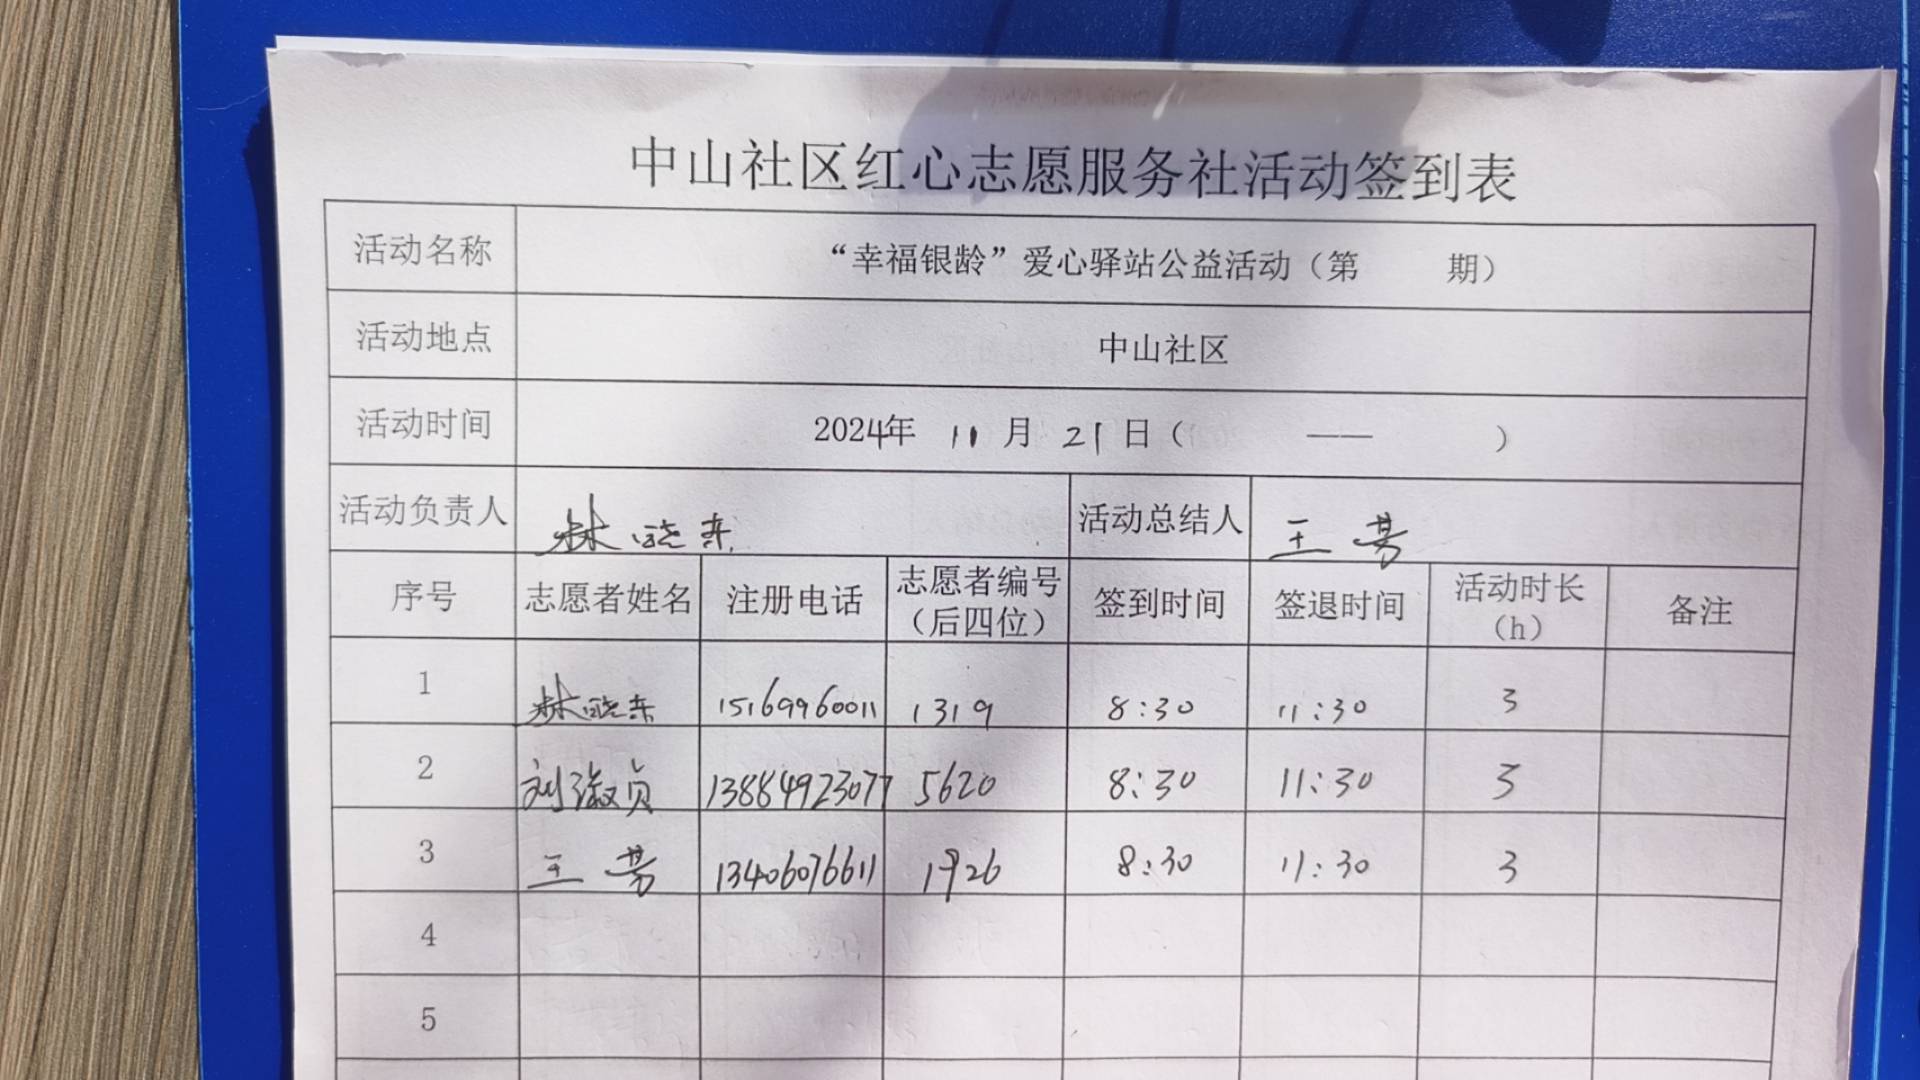 中山社区红心志愿服务社活动签到表
活动名称 “幸福银龄”爱心驿站公益活动（第 期）
活动地点 中山社区
活动时间 2024年 11 月 21 日（ —— ）
活动负责人 林晓东 活动总结人 王芳
序号 志愿者姓名 注册电话 志愿者编号（后四位） 签到时间 签退时间 活动时长（h） 备注
1 林晓东 15169960011 1319 8:30 11:30 3
2 刘淑贞 13884923077 5620 8:30 11:30 3
3 王芳 13406076611 1926 8:30 11:30 3
4
5